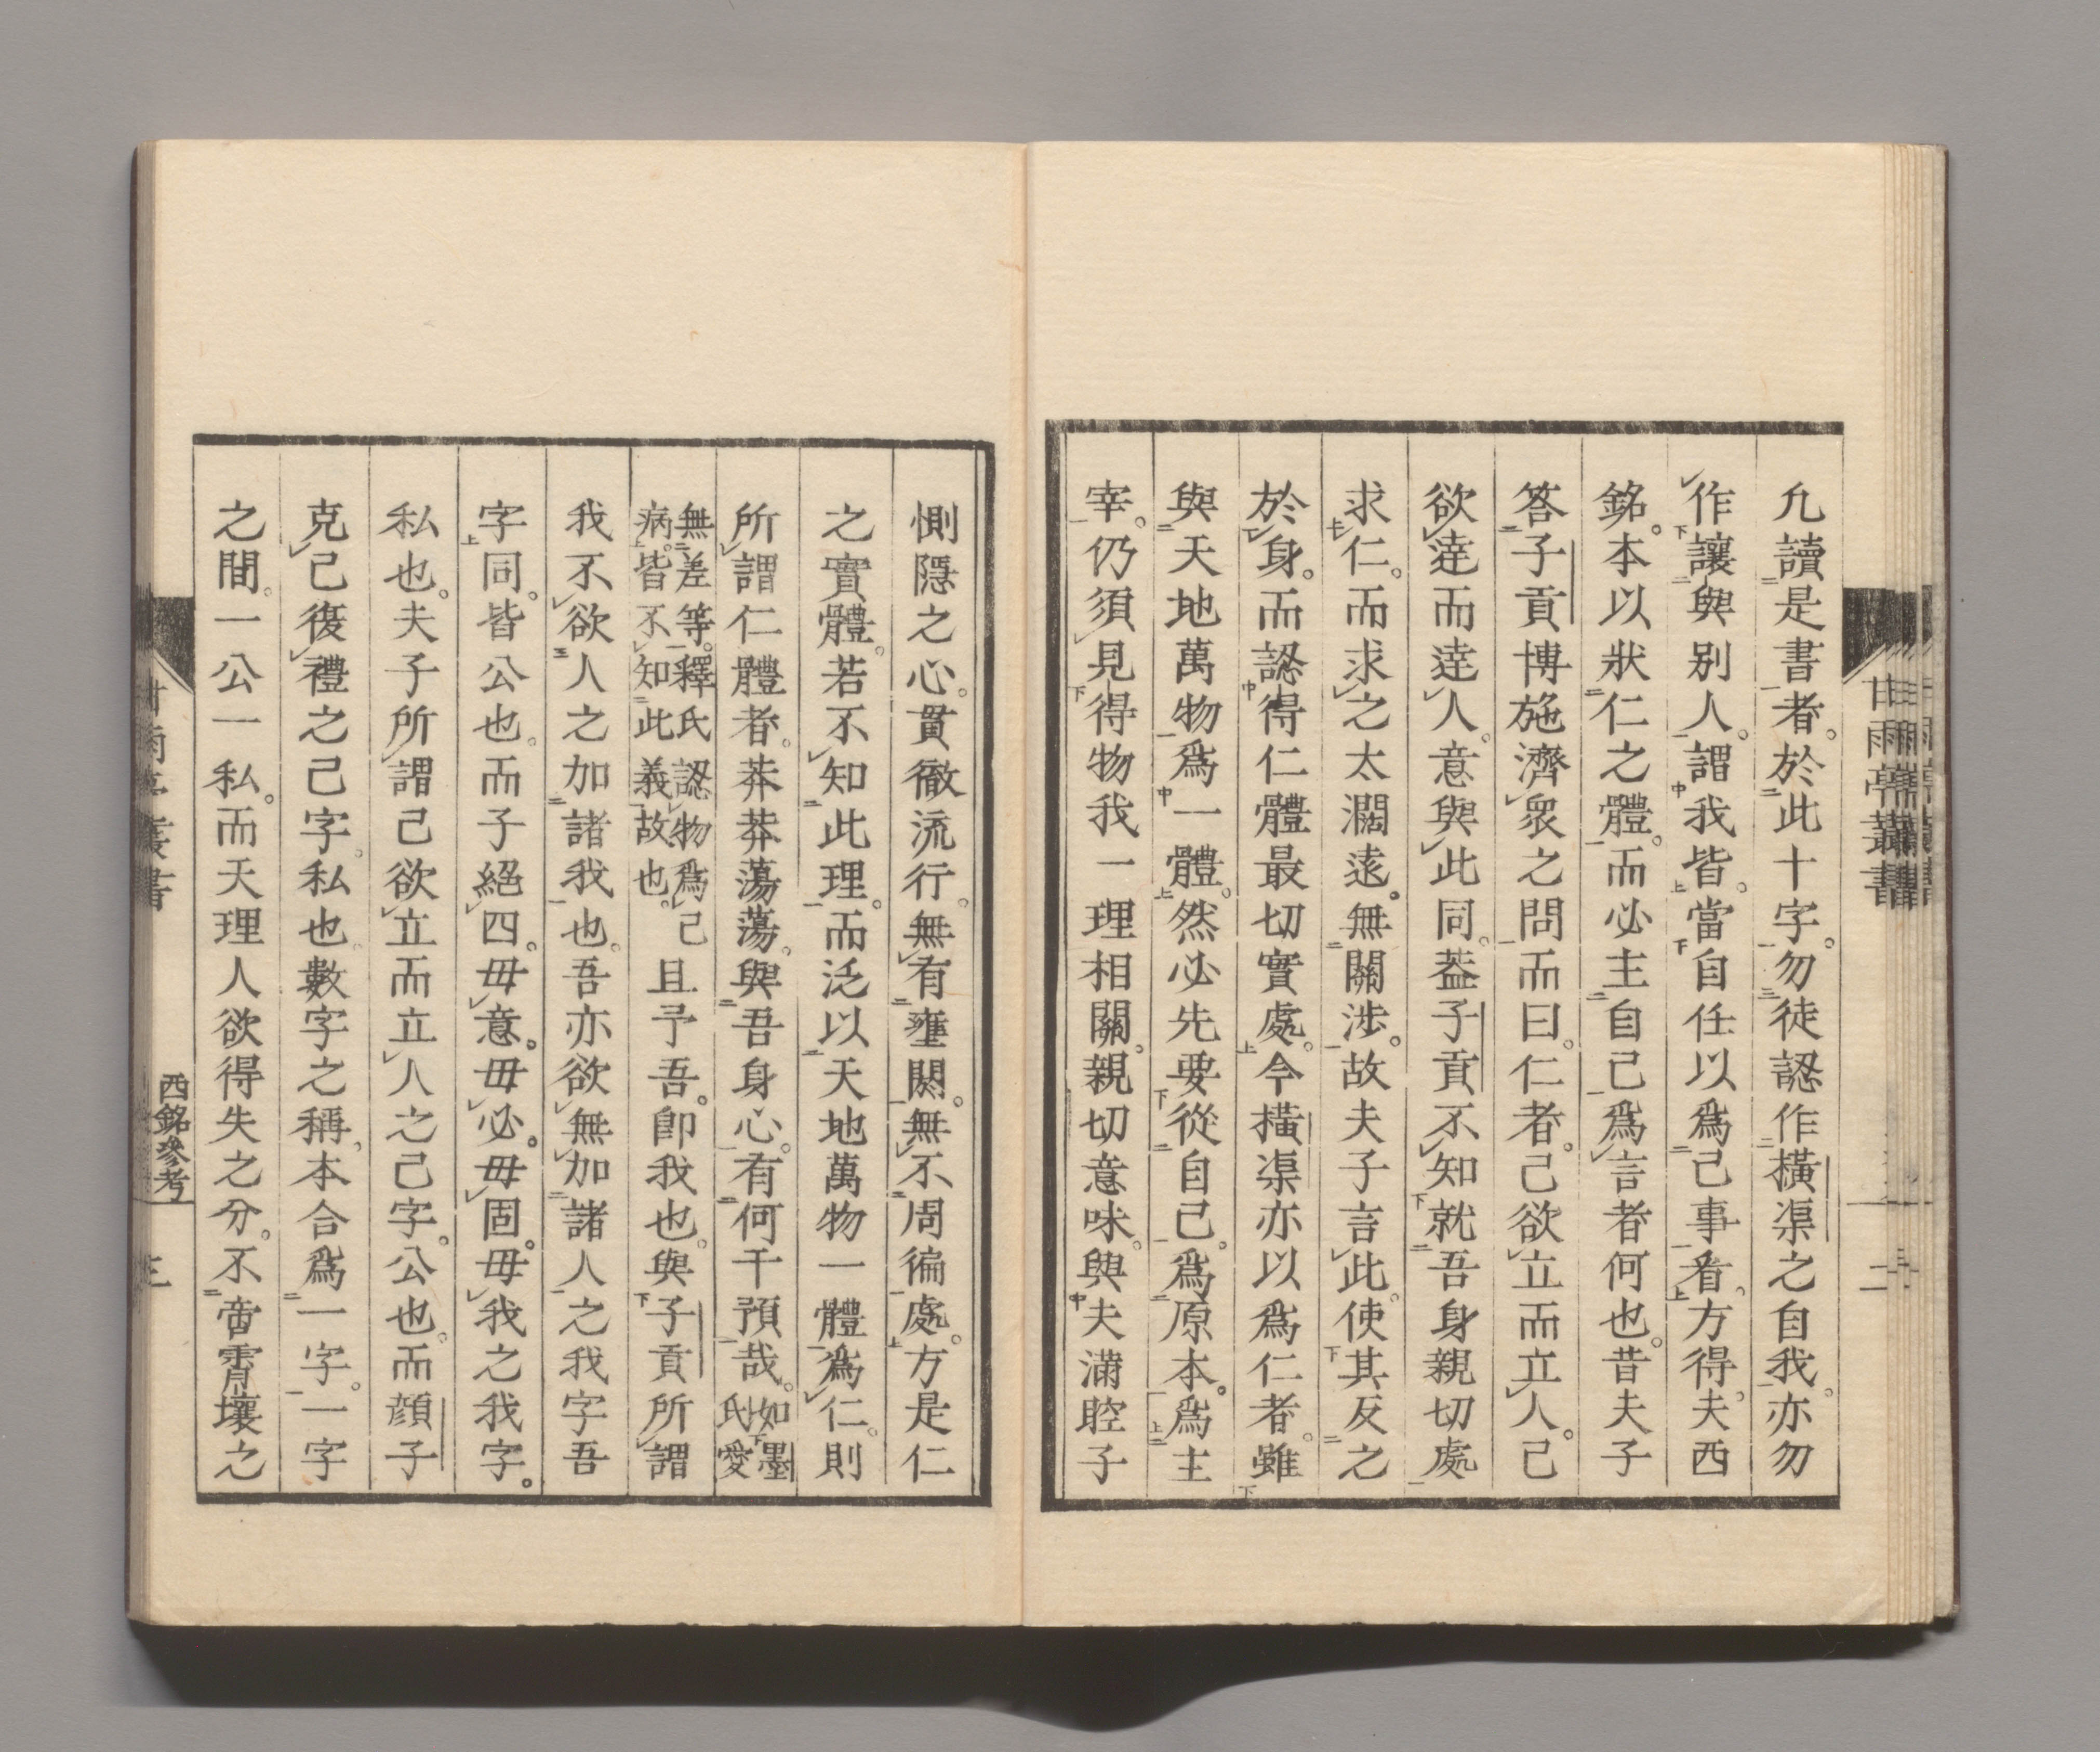 凢讀是書者。於此十字。勿徒認作橫渠之自我。亦勿
作讓與別人。謂我皆。當自任以爲己事看。方得。夫西
銘。本以狀仁之體。而必主自己爲言者何也。昔夫子
答子貢博施濟衆之問而曰。仁者。己欲立而立人。己
欲達而達人。意與此同。葢子貢不知就吾身親切處
求仁。而求之太濶遠。無關涉。故夫子言此。使其反之
於身。而認得仁體最切實處。今橫渠亦以爲仁者。雖
與天地萬物爲一體。然必先要從自己。爲原本。爲主
宰。仍須見得物我一理相關。親切意味。與夫滿腔子
惻隱之心。貫徹流行。無有壅閼。無不周徧處。方是仁
之實體。若不知此理。而泛以天地萬物一體爲仁。則
所謂仁體者。莽莽蕩蕩。與吾身心。有何干預哉。如墨氏愛
無差等。釋氏認物爲己病。皆不知此義故也。且予吾。卽我也。與子貢所謂
我不欲人之加諸我也。吾亦欲無加諸人之我字吾
字同。皆公也。而子絕四。毋意。毋必。毋固。毋我之我字。
私也。夫子所謂己欲立而立人之己字。公也。而顏子
克己復禮之己字。私也。數字之稱。本合爲一字。一字
之間。一公一私。而天理人欲得失之分。不啻霄壤之
甘雨亭叢書
二
西銘參考
三